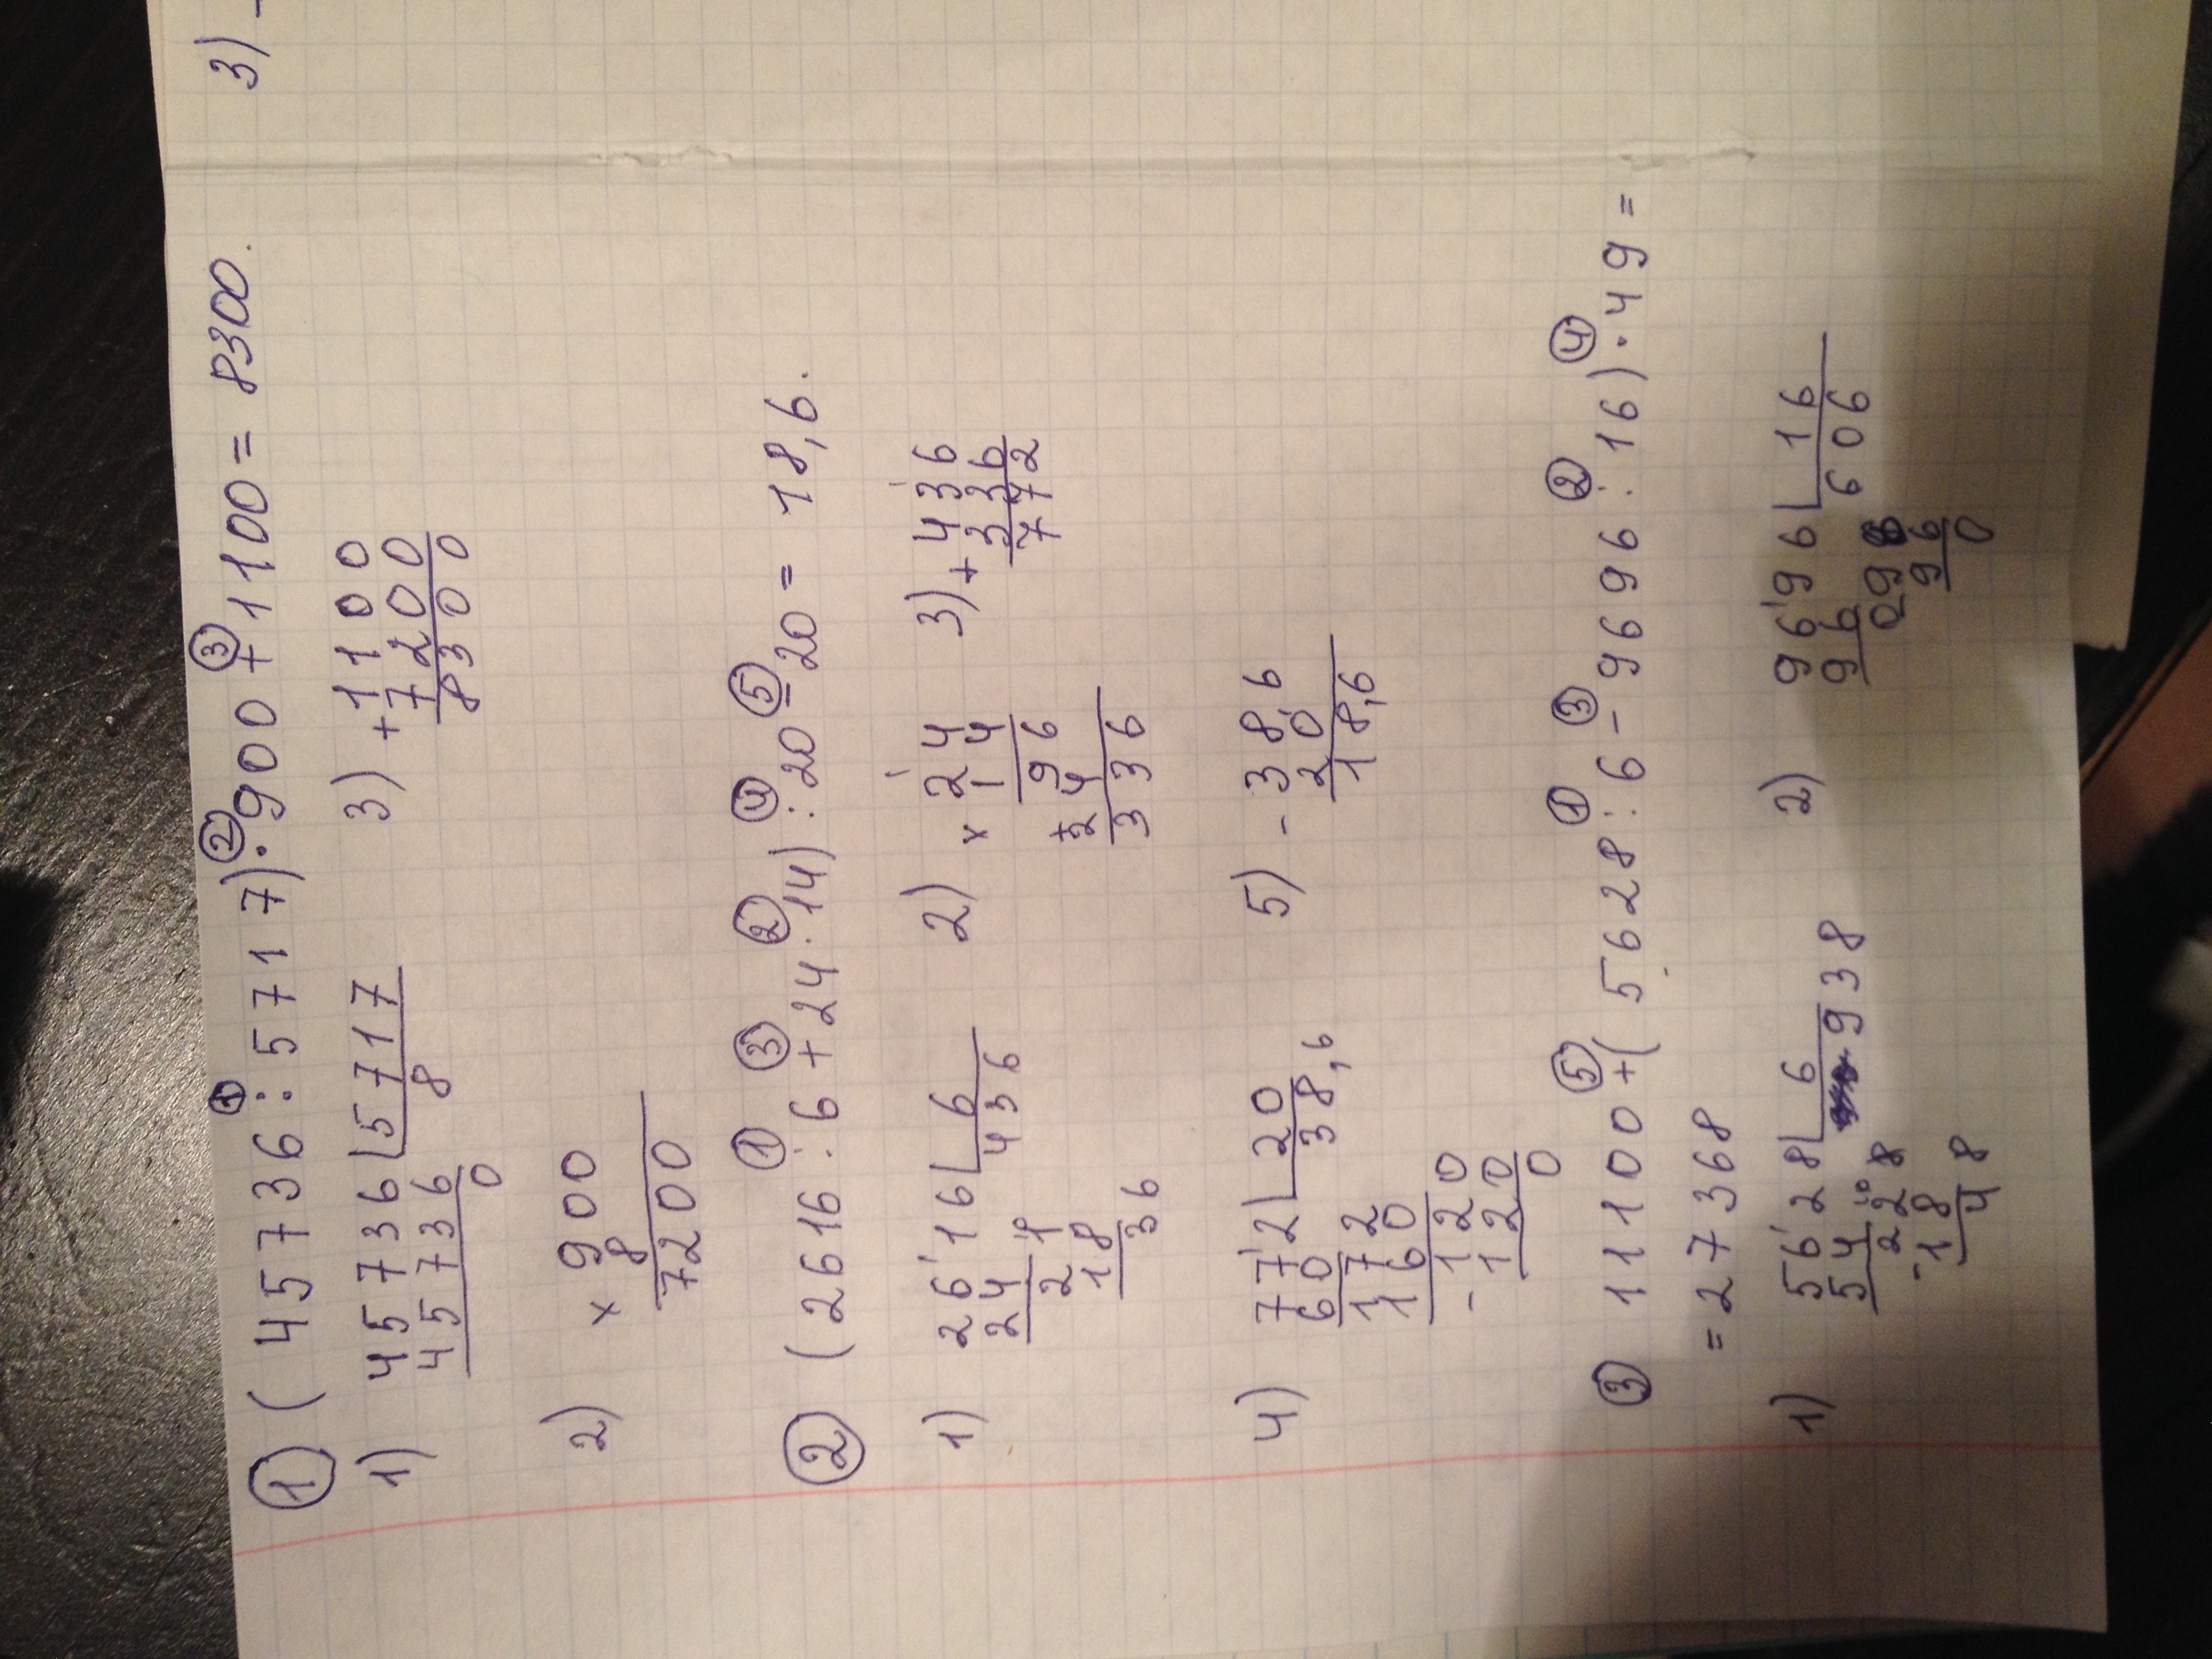 ① (45736 : 5717) · 900 + 1100 = 8300.
① ② ③
1) 45736 | 5717
45736 8
0
3) + 1100
7200
8300
2) × 900
8
7200
② (2616 : 6 + 24 · 14) : 20 - 20 = 18,6.
① ③ ② ④ ⑤
1) 2616 | 6
24 436
21
18
36
2) × 24
14
96
+ 24
336
3) + 436
336
772
4) 772 | 20
60 38,6
172
160
- 120
120
0
5) - 38,6
20
18,6
③ 11100 + (5628 : 6 - 9696 : 16) · 49 =
⑤ ① ③ ② ④
= 27368
1) 5628 | 6
54 938
22
- 18
48
2) 9696 | 16
96 606
096
96
0
3) -